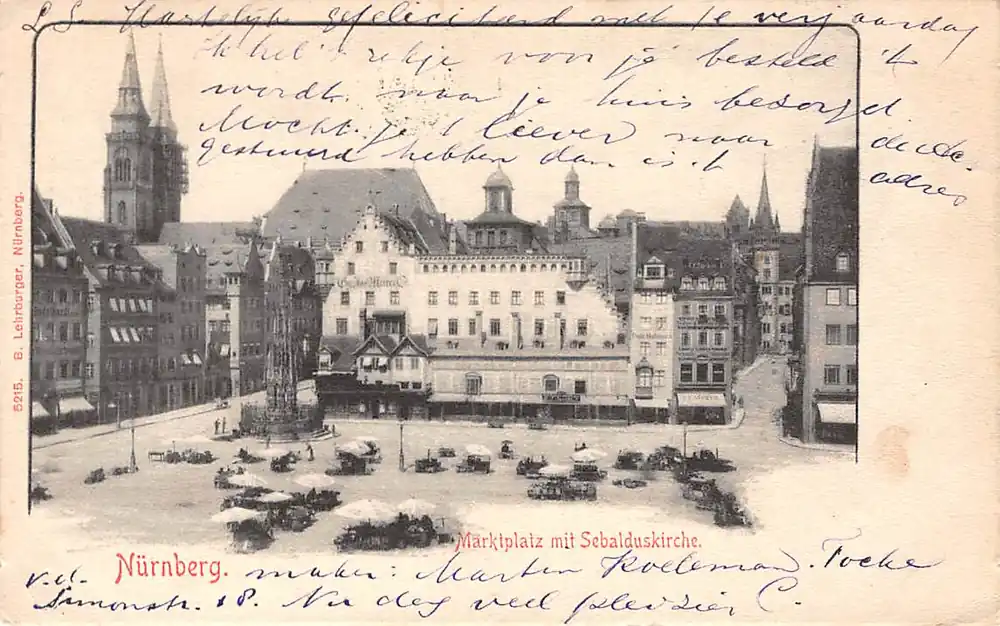 L.S. Hartelijk gefeliciteerd met je verjaardag
Ik heb 't rekje voor je besteld 't
wordt naar je huis bezorgd
Mocht je 't liever naar dit
gestuurd hebben dan is 't adres
5215. B. Lehrburger, Nürnberg.
Marktplatz mit Sebalduskirche.
Nürnberg.
v.d. maker: Marten Focke
Simonstr. 18. Nu dag veel plezier C.